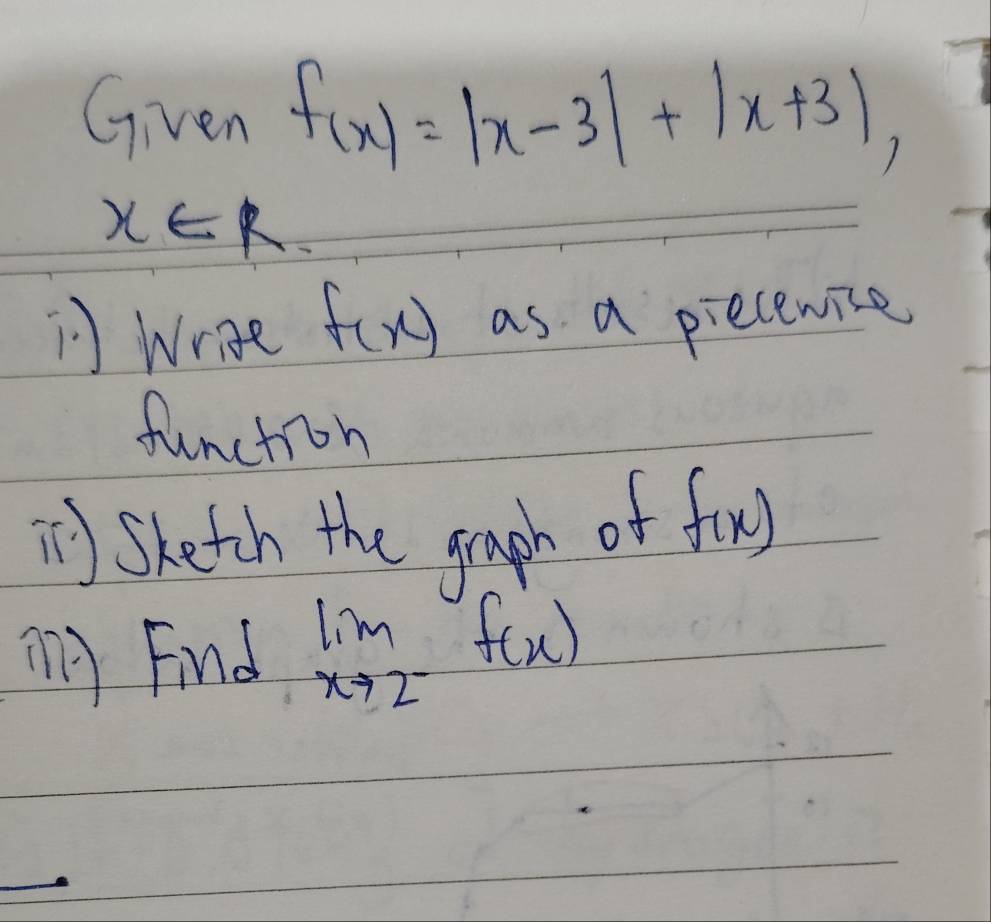 Given f(x) = |x-3| + |x+3|,
x ∈ R.
i.) Write f(x) as a piecewise
function
ii.) Sketch the graph of f(x)
iii.) Find lim x→2⁻ f(x)